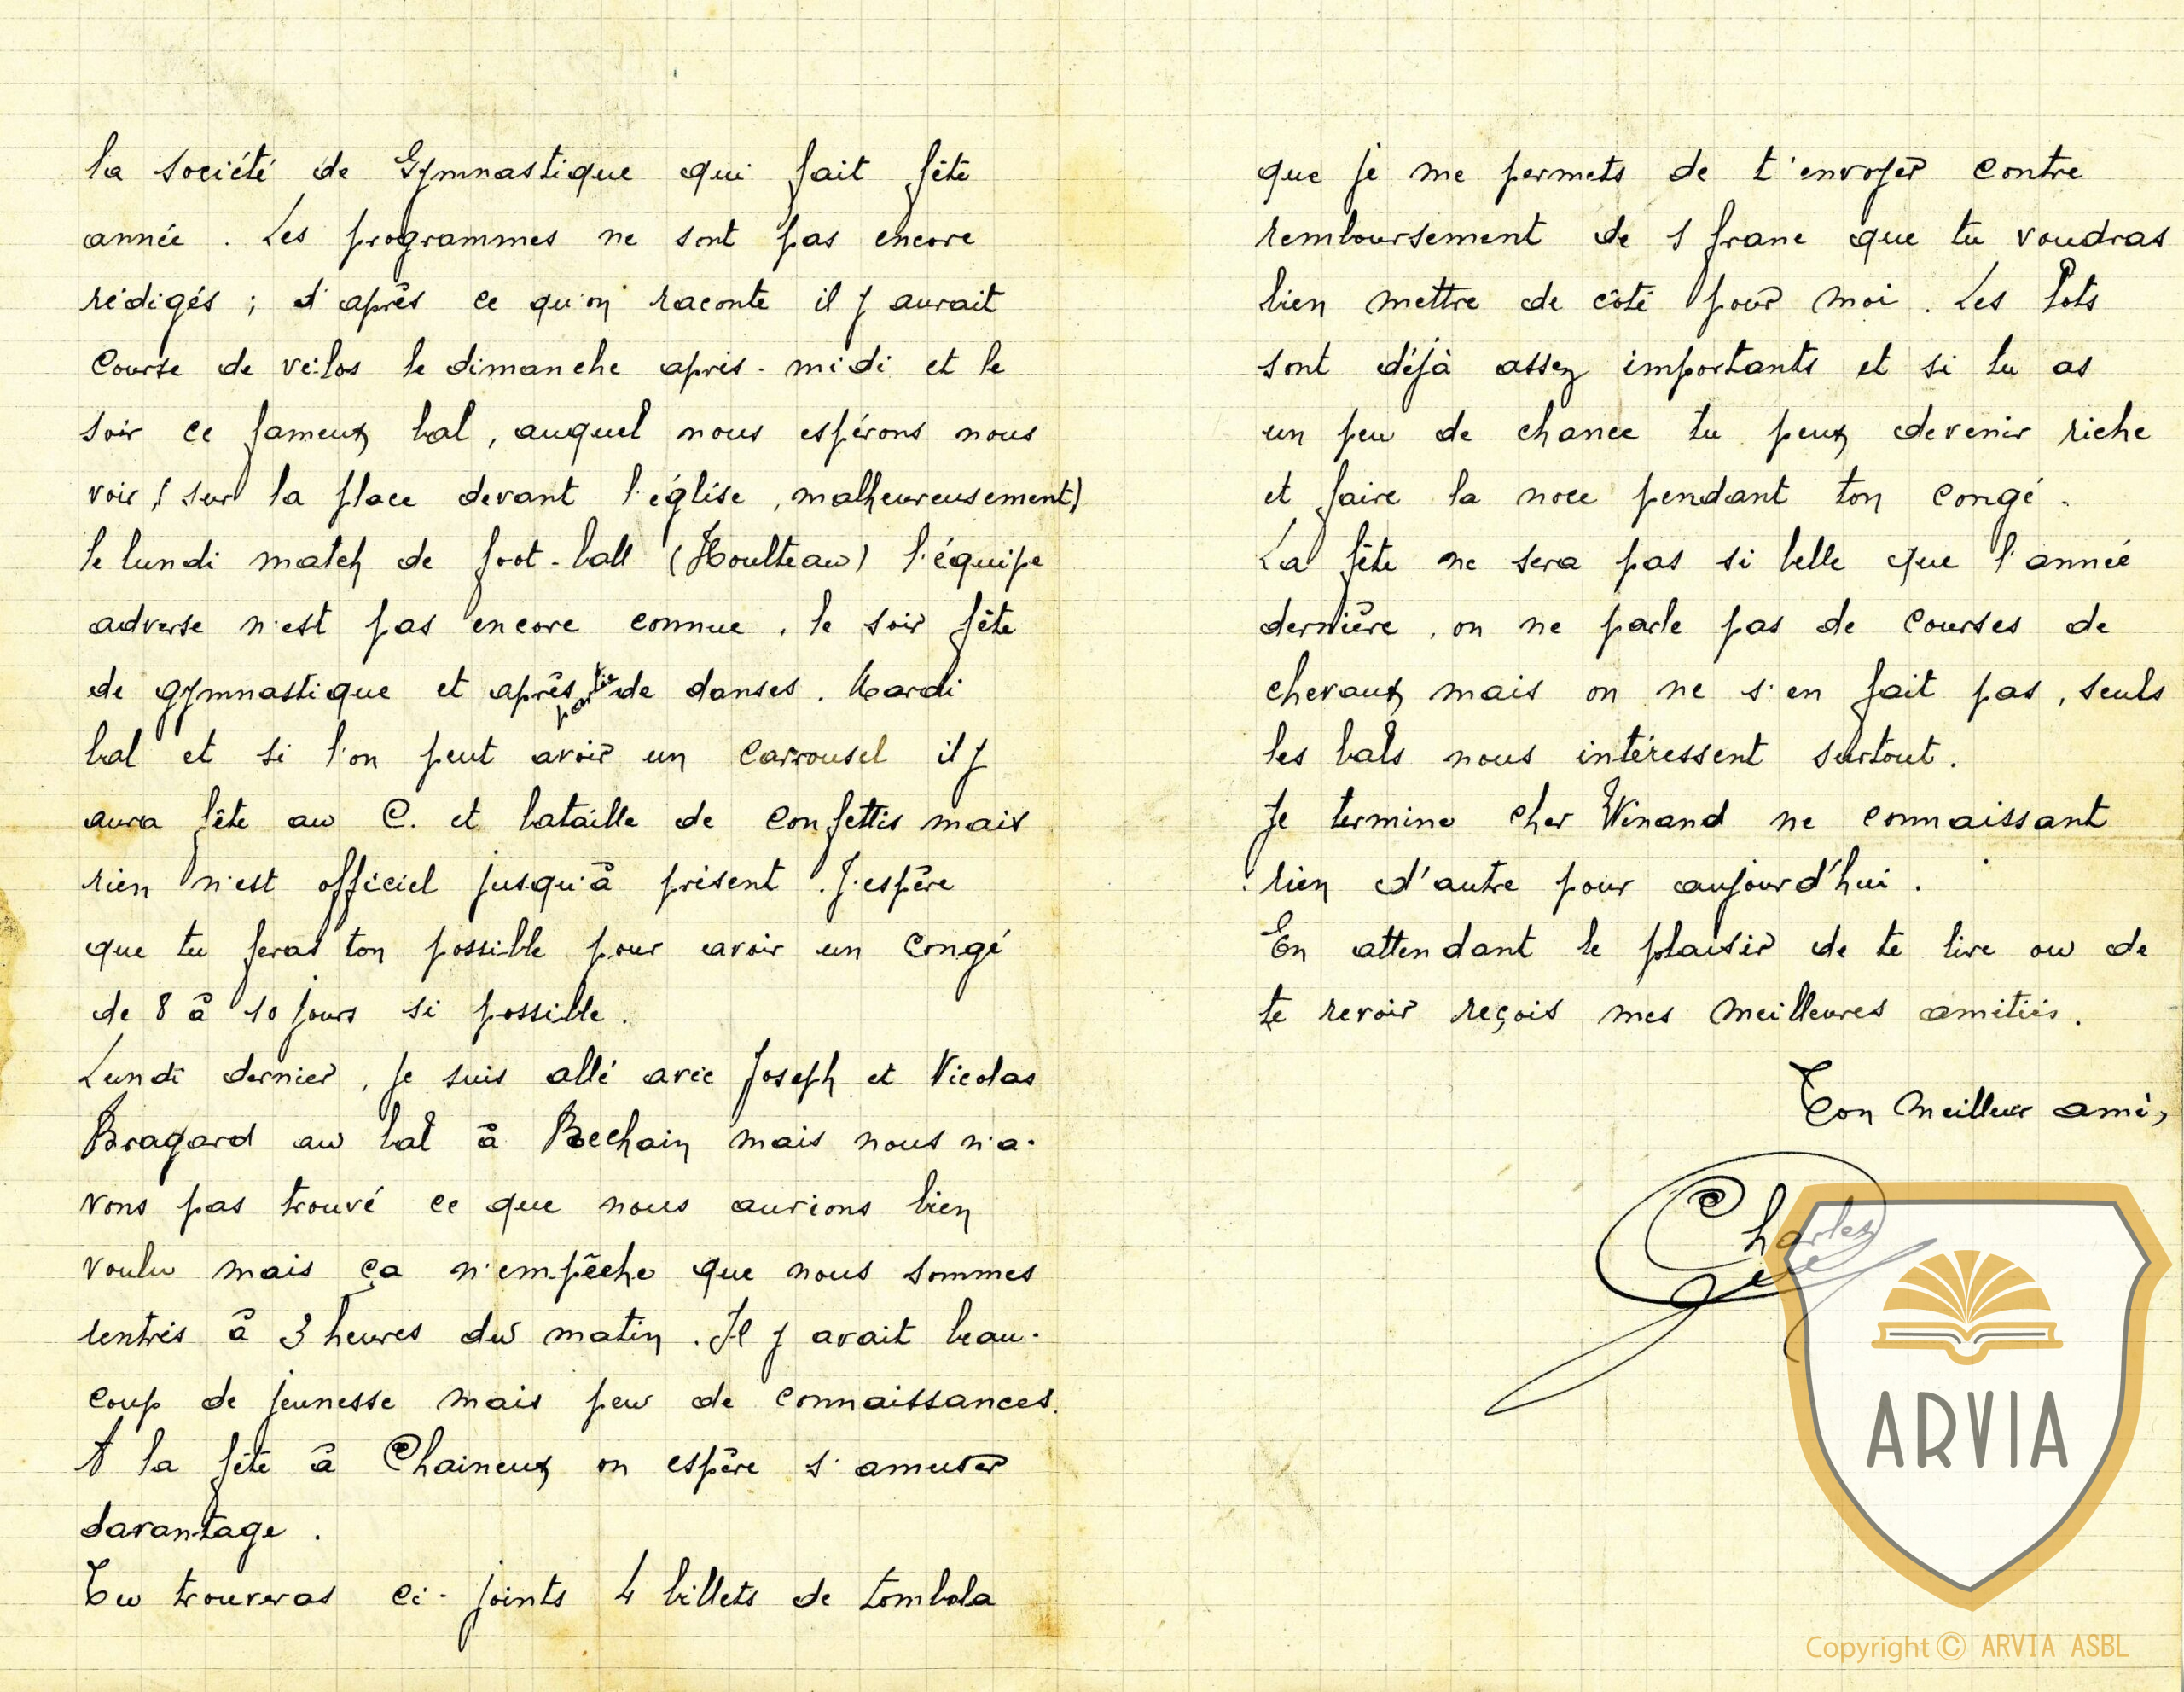 la société de Gymnastique qui fait fête
année. Les programmes ne sont pas encore
rédigés ; d'après ce qu'on raconte il y aurait
Course de vélos le dimanche après-midi et le
soir ce fameux bal, auquel nous espérons nous
voir (sur la place devant l'église, malheureusement)
le lundi match de foot-ball (Houlteau) l'équipe
adverse n'est pas encore connue, le soir fête
de gymnastique et après partie de danses. Mardi
bal et si l'on peut avoir un Carrousel il y
aura fête au C. et bataille de Confettis mais
rien n'est officiel jusqu'à présent. J'espère
que tu feras ton possible pour avoir un Congé
de 8 à 10 jours si possible.
Lundi dernier, je suis allé avec Joseph et Nicolas
Bragard au bal à Bechain mais nous n'a-
vons pas trouvé ce que nous aurions bien
voulu mais ça n'empêche que nous sommes
rentrés à 3 heures du matin. Il y avait beau-
coup de jeunesse mais peu de connaissances.
A la fête à Chaineux on espère s'amuser
davantage.
Tu trouveras ci-joints 4 billets de tombola
que je me permets de t'envoyer contre
remboursement de 1 franc que tu voudras
bien mettre de côté pour moi. Les Lots
sont déjà assez importants et si tu as
un peu de chance tu peux devenir riche
et faire la noce pendant ton congé.
La fête ne sera pas si belle que l'année
dernière, on ne parle pas de Courses de
chevaux mais on ne s'en fait pas, seuls
les bals nous intéressent surtout.
Je termine cher Winand ne connaissant
rien d'autre pour aujourd'hui.
En attendant le plaisir de te lire ou de
te revoir reçois mes meilleures amitiés.
Ton meilleur ami,
Charles
ARVIA
Copyright © ARVIA ASBL